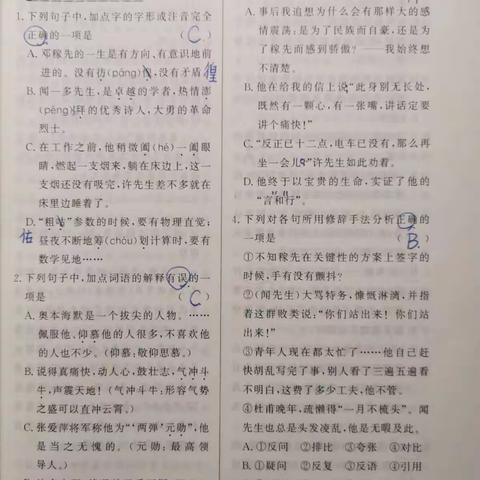 1. 下列句子中，加点字的字形或注音完全
正确的一项是 （ C ）
A. 邓稼先的一生是有方向、有意识地前
进的。没有彷(páng)徨，没有矛盾。徨
B. 闻一多先生，是卓越的学者，热情澎
(péng)拜的优秀诗人，大勇的革命
烈士。
C. 在工作之前，他稍微阖(hé)一阖眼
睛，燃起一支烟来，躺在床边上，这一
支烟还没有吸完，许先生差不多就在
床里边睡着了。
D. “粗"参数的时候，要有物理直觉；
佑
昼夜不断地筹(chóu)划计算时，要有
数学见地……
2. 下列句子中，加点词语的解释有误的一
项是 （ C ）
A. 奥本海默是一个拔尖的人物。……
佩服他、仰慕他的人很多，不喜欢他
的人也不少。(仰慕：敬仰思慕。)
B. 说得真痛快，动人心，鼓壮志，气冲斗
牛，声震天地！(气冲斗牛：形容气势
之盛可以直冲云霄。)
C. 张爱萍将军称他为“‘两弹’元勋”，他
是当之无愧的。(元勋：最高领
导人。)
A. 事后我追想为什么会有那样大的感
情震荡：是为了民族而自豪，还是为
了稼先而感到骄傲？——我始终想
不清楚。
B. 他在给我的信上说“此身别无长处，
既然有一颗心，有一张嘴，讲话定要
讲个痛快！”
C. “反正已十二点，电车已没有，那么再
坐一会儿”许先生如此劝着。
D. 他终于以宝贵的生命，实证了他的
“言和行”。
4. 下列对各句所用修辞手法分析正确的
一项是 （ B. ）
①不知稼先在关键性的方案上签字的
时候，手有没有颤抖？
②(闻先生)大骂特务，慷慨淋漓，并指
着这群败类说：“你们站出来！你们站
出来！”
③青年人现在都太忙了……他自己赶
快胡乱写完了事，别人看了三遍五遍看
不明白，这费了多少工夫，他不管。
④杜甫晚年，疏懒得“一月不梳头”。闻
先生也总是头发凌乱，他是无暇及此。
A. ①反问 ②排比 ③夸张 ④对比
B. ①疑问 ②反复 ③反语 ④引用